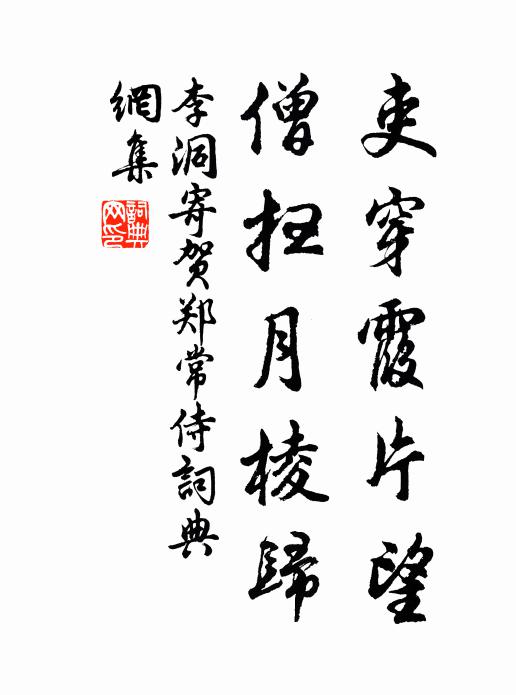 吏穿霞片望
僧扫月棱歸
李洞寄贺郑常侍詞典
網集
詞典
网印